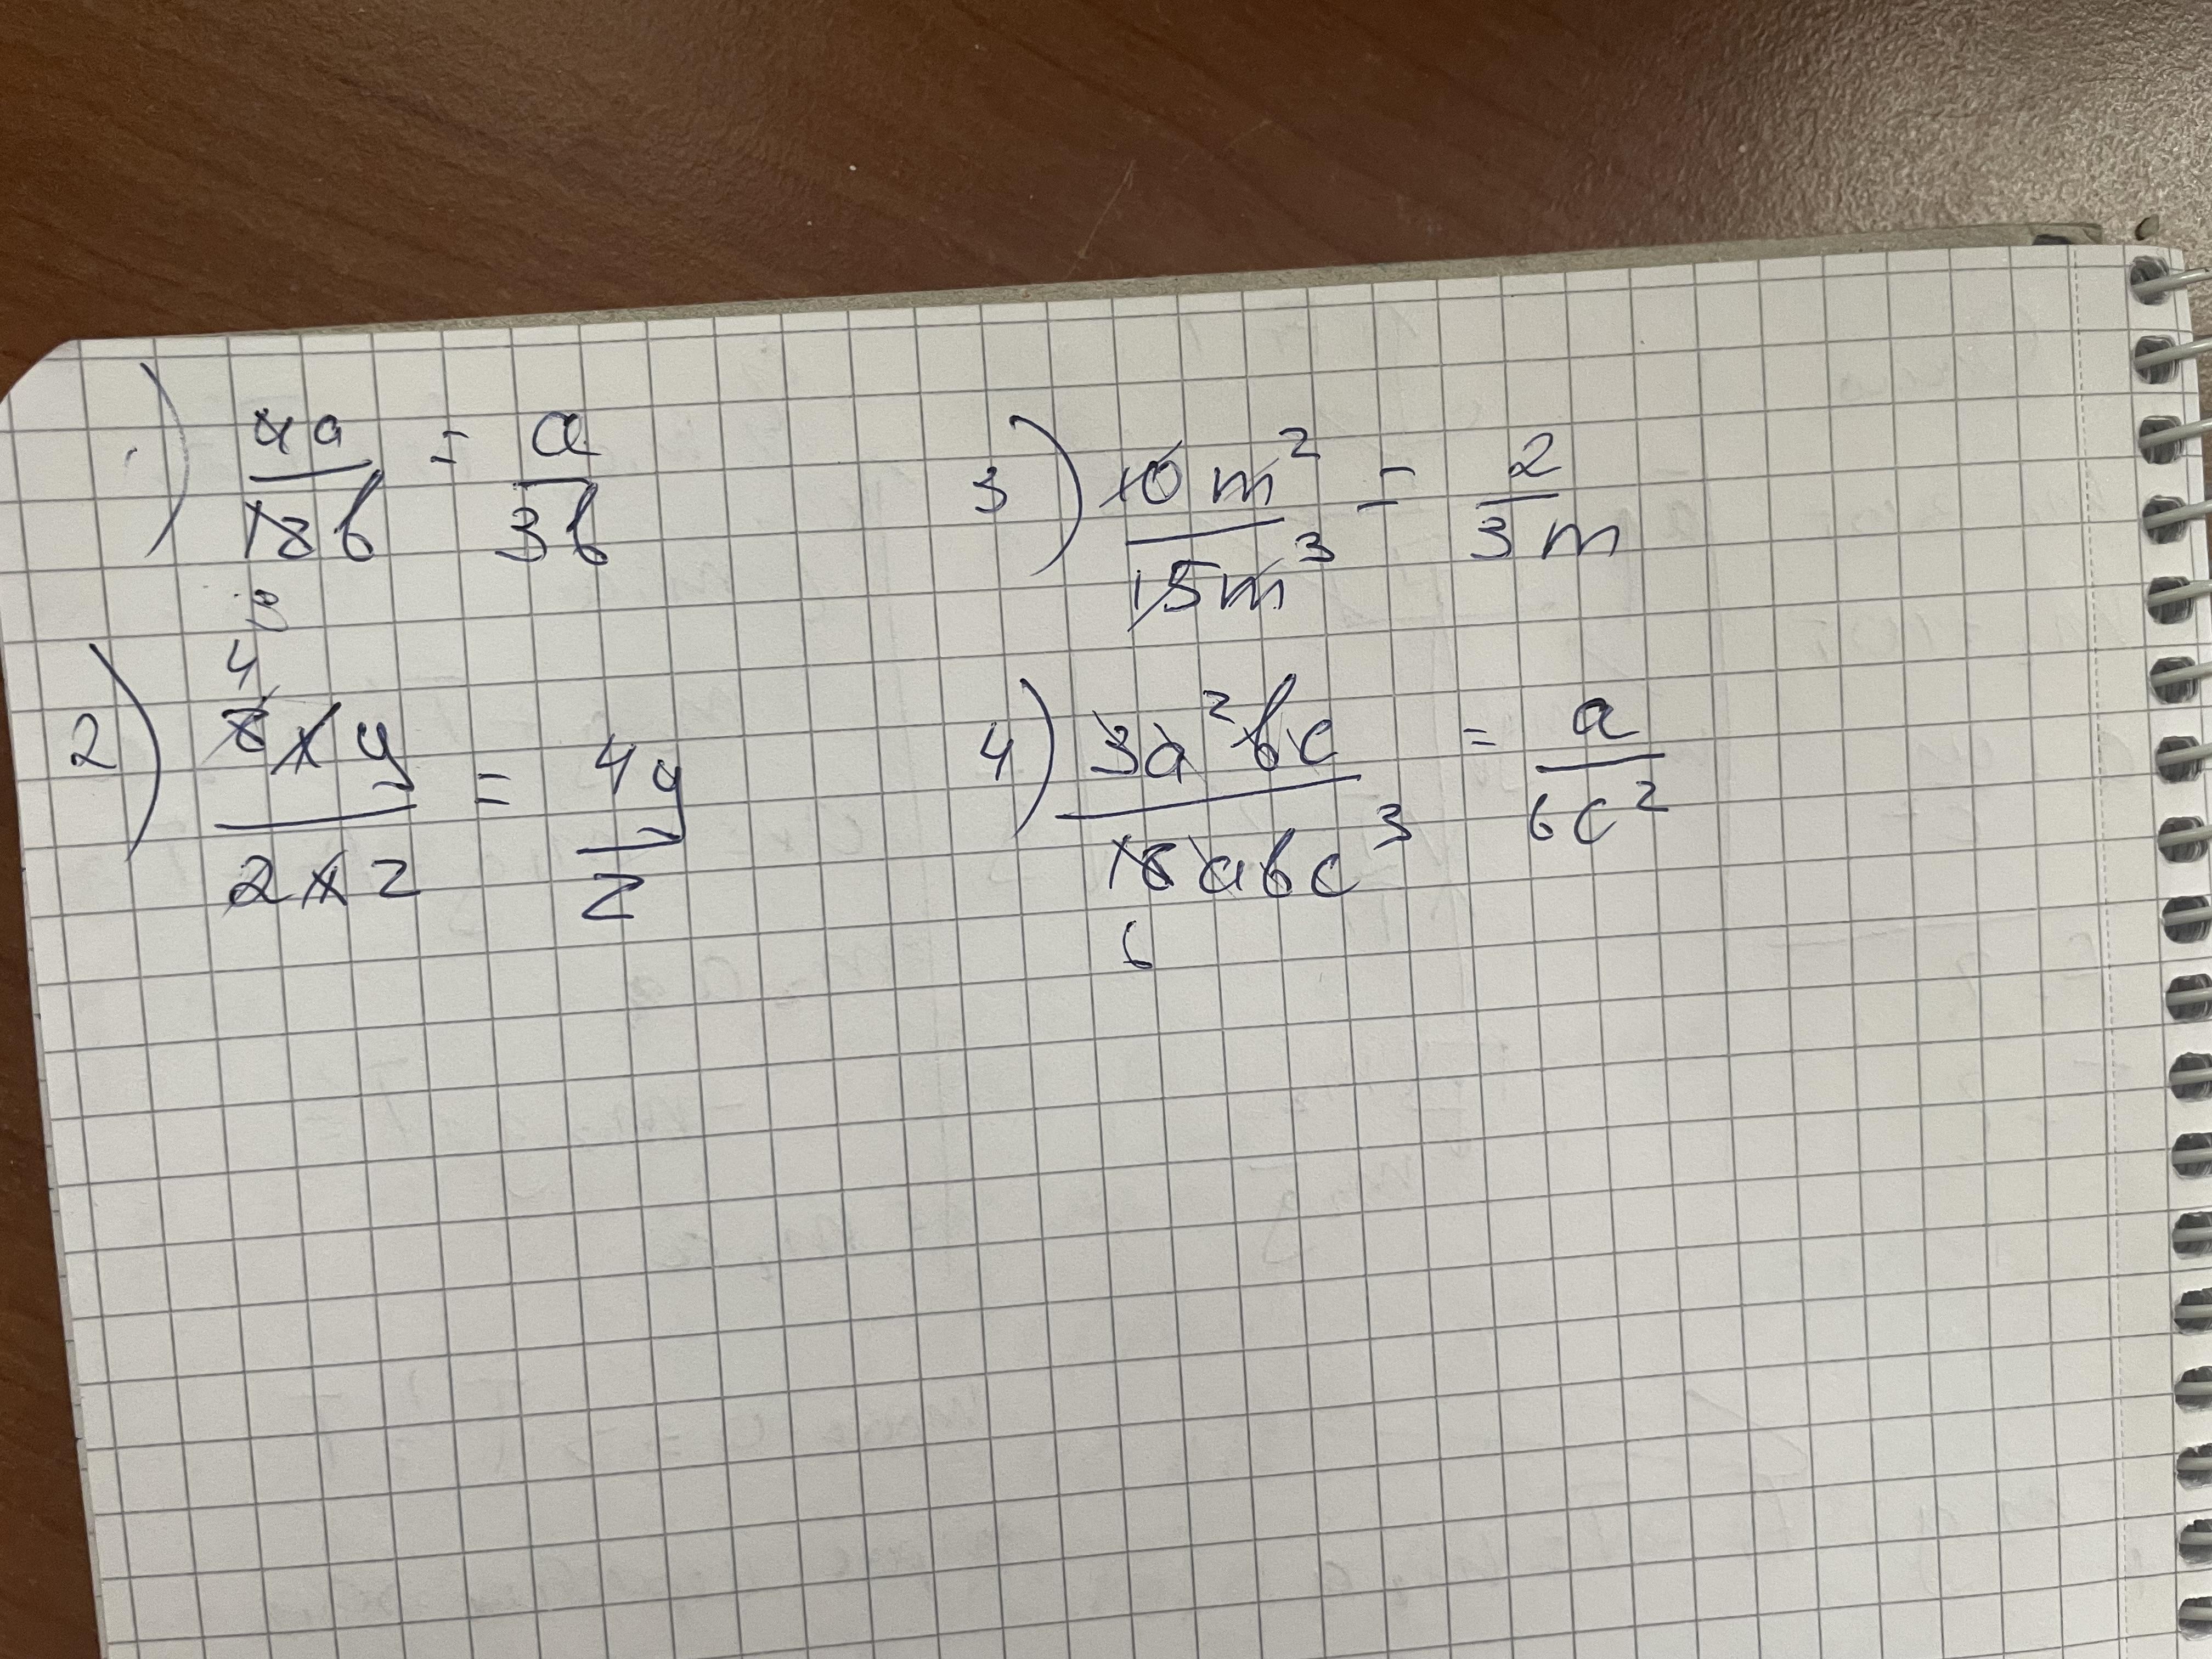 1) 4a/12b = a/3b
3
2) 4
8xy/2xz = 4y/z
3) 10m²/15m³ = 2/3m
4) 3a²bc/18abc³ = a/6c²
6